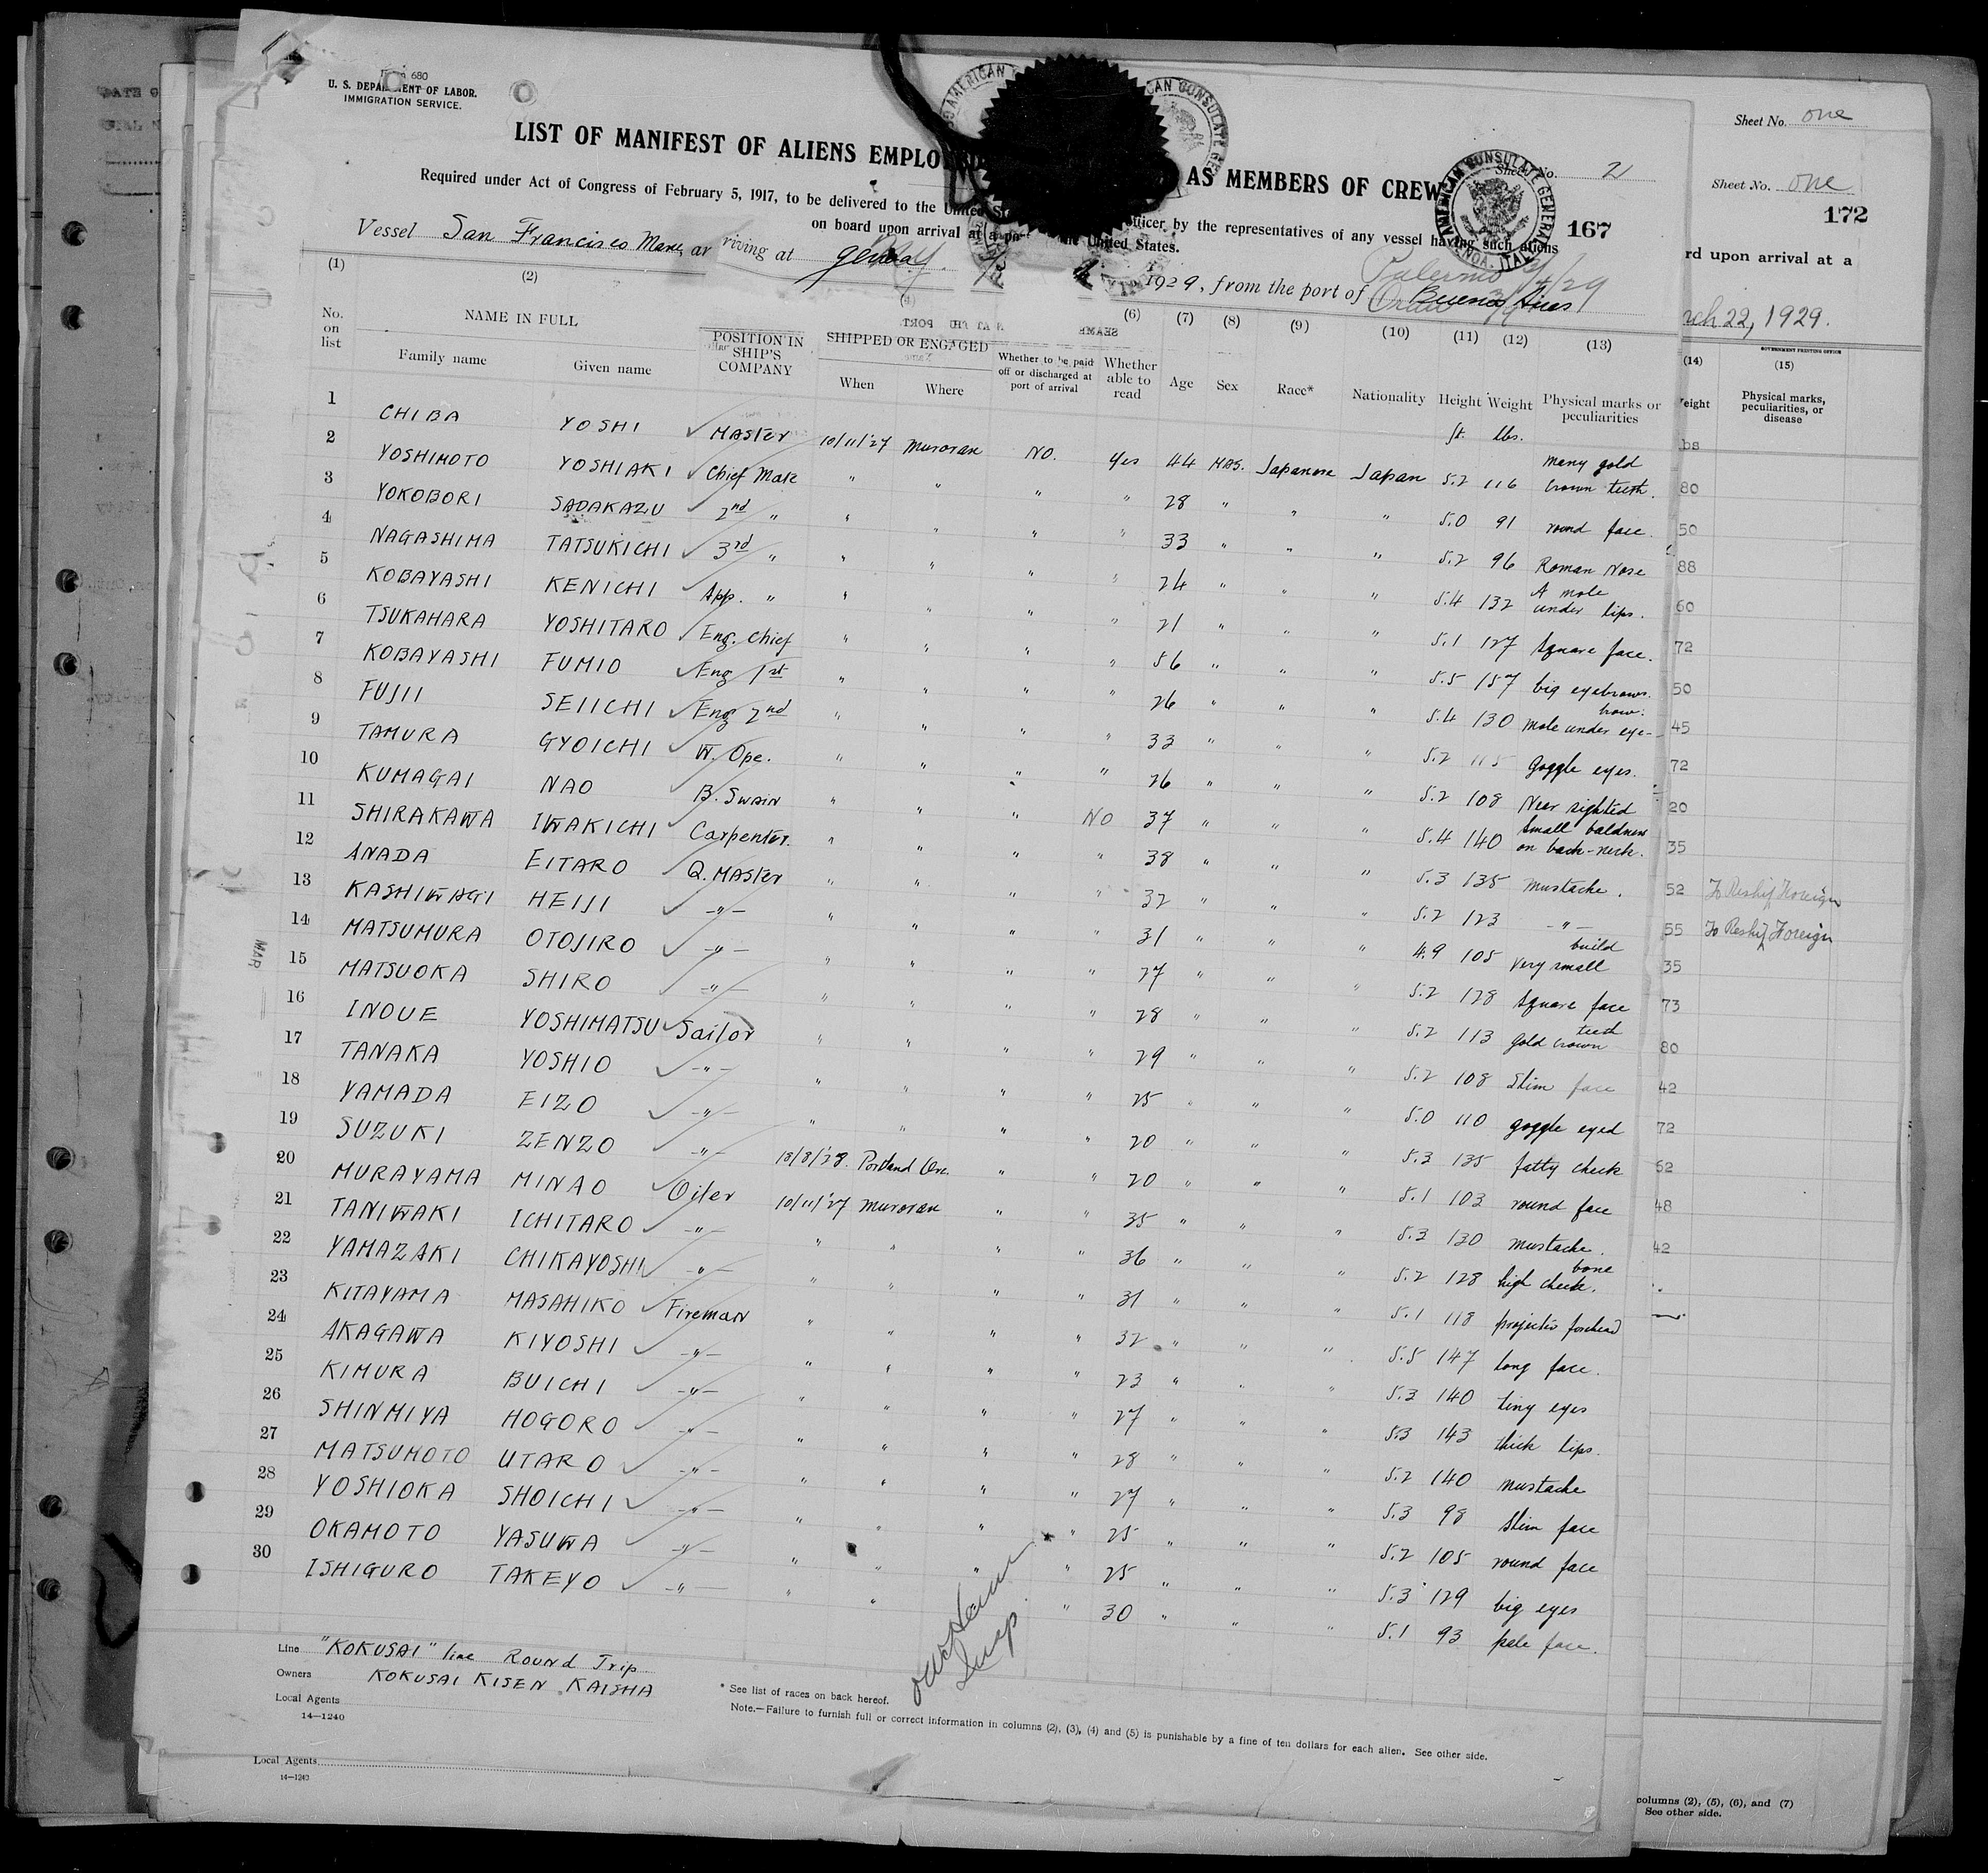 Form 680
U. S. DEPARTMENT OF LABOR.
IMMIGRATION SERVICE.
LIST OF MANIFEST OF ALIENS EMPLO AS MEMBERS OF CREW
Sheet No. 2
167
Required under Act of Congress of February 5, 1917, to be delivered to the United officer by the representatives of any vessel having such aliens
on board upon arrival at a United States.
Vessel San Francisco Maru, arriving at 1929, from the port of Buenos Aires
Palermo
Oran
AMERICAN CONSULATE GENERAL
GENOA, ITALY
(1) (2) (4) (6) (7) (8) (9) (10) (11) (12) (13)
No. on list
NAME IN FULL
Family name Given name
POSITION IN SHIP'S COMPANY
SHIPPED OR ENGAGED
When Where
Whether to be paid off or discharged at port of arrival
Whether able to read
Age Sex Race* Nationality Height Weight Physical marks or peculiarities
ft. lbs.
1 CHIBA YOSHI Master 10/11/27 Muroran No. Yes 44 Mas. Japanese Japan 5.2 116 many gold crown teeth.
2 YOSHIMOTO YOSHIAKI Chief Mate " " " " 28 " " " 5.0 91 round face.
3 YOKOBORI SADAKAZU 2nd " " " " " 33 " " " 5.2 96 Roman Nose
4 NAGASHIMA TATSUKICHI 3rd " " " " " 24 " " " 5.4 132 A mole under lips.
5 KOBAYASHI KENICHI App. " " " " " 21 " " " 5.1 127 Square face.
6 TSUKAHARA YOSHITARO Eng. Chief " " " " 56 " " " 5.5 157 big eyebrows.
7 KOBAYASHI FUMIO Eng 1st " " " " 26 " " " 5.4 130 mole under eye-brow.
8 FUJII SEIICHI Eng 2nd " " " " 33 " " " 5.2 115 goggle eyes.
9 TAMURA GYOICHI W. Ope. " " " " 26 " " " 5.2 108 Near sighted
10 KUMAGAI NAO B. Swain " " " No 37 " " " 5.4 140 Small baldness on back-neck.
11 SHIRAKAWA IWAKICHI Carpenter. " " " " 38 " " " 5.3 135 mustache.
12 ANADA EITARO Q. Master " " " " 32 " " " 5.2 123 -"-
13 KASHIWAGI HEIJI -"- " " " " 31 " " " 4.9 105 very small build
14 MATSUMURA OTOJIRO -"- " " " " 27 " " " 5.2 128 Square face
15 MATSUOKA SHIRO -"- " " " " 28 " " " 5.2 113 gold crown teeth
16 INOUE YOSHIMATSU Sailor " " " " 29 " " " 5.2 108 Slim face
17 TANAKA YOSHIO -"- " " " " 25 " " " 5.0 110 goggle eyed
18 YAMADA EIZO -"- " " " " 20 " " " 5.3 135 fatty cheek
19 SUZUKI ZENZO -"- 18/8/28. Portland Ore. " " 20 " " " 5.1 103 round face
20 MURAYAMA MINAO Oiler 10/11/27 Muroran " " 35 " " " 5.3 130 mustache.
21 TANIWAKI ICHITARO -"- " " " " 36 " " " 5.2 128 high cheek bone.
22 YAMAZAKI CHIKAYOSHI -"- " " " " 31 " " " 5.1 118 projectio forehead
23 KITAYAMA MASAHIKO Fireman " " " " 32 " " " 5.5 147 long face.
24 AKAGAWA KIYOSHI -"- " " " " 23 " " " 5.3 140 tiny eyes
25 KIMURA BUICHI -"- " " " " 27 " " " 5.3 143 thick lips.
26 SHINMIYA HOGORO -"- " " " " 28 " " " 5.2 140 mustache
27 MATSUMOTO UTARO -"- " " " " 27 " " " 5.3 98 slim face
28 YOSHIOKA SHOICHI -"- " " " " 25 " " " 5.2 105 round face
29 OKAMOTO YASUWA -"- " " " " 25 " " " 5.3 129 big eyes
30 ISHIGURO TAKEYO -"- " " " 30 " " " 5.1 93 pale face.
Line "KOKUSAI" line Round Trip
Owners KOKUSAI KISEN KAISHA
Local Agents
14—1240
* See list of races on back hereof.
Note.—Failure to furnish full or correct information in columns (2), (3), (4) and (5) is punishable by a fine of ten dollars for each alien. See other side.
Local Agents
14—1240
MAR
Sheet No. one
Sheet No. one
172
rd upon arrival at a
rch 22, 1929.
GOVERNMENT PRINTING OFFICE
(14) (15)
Physical marks, peculiarities, or disease
bs
80
50
88
60
72
50
45
72
20
35
52 To Reship Foreign
55 To Reship Foreign
35
73
80
42
72
52
48
42
columns (2), (5), (6), and (7)
See other side.